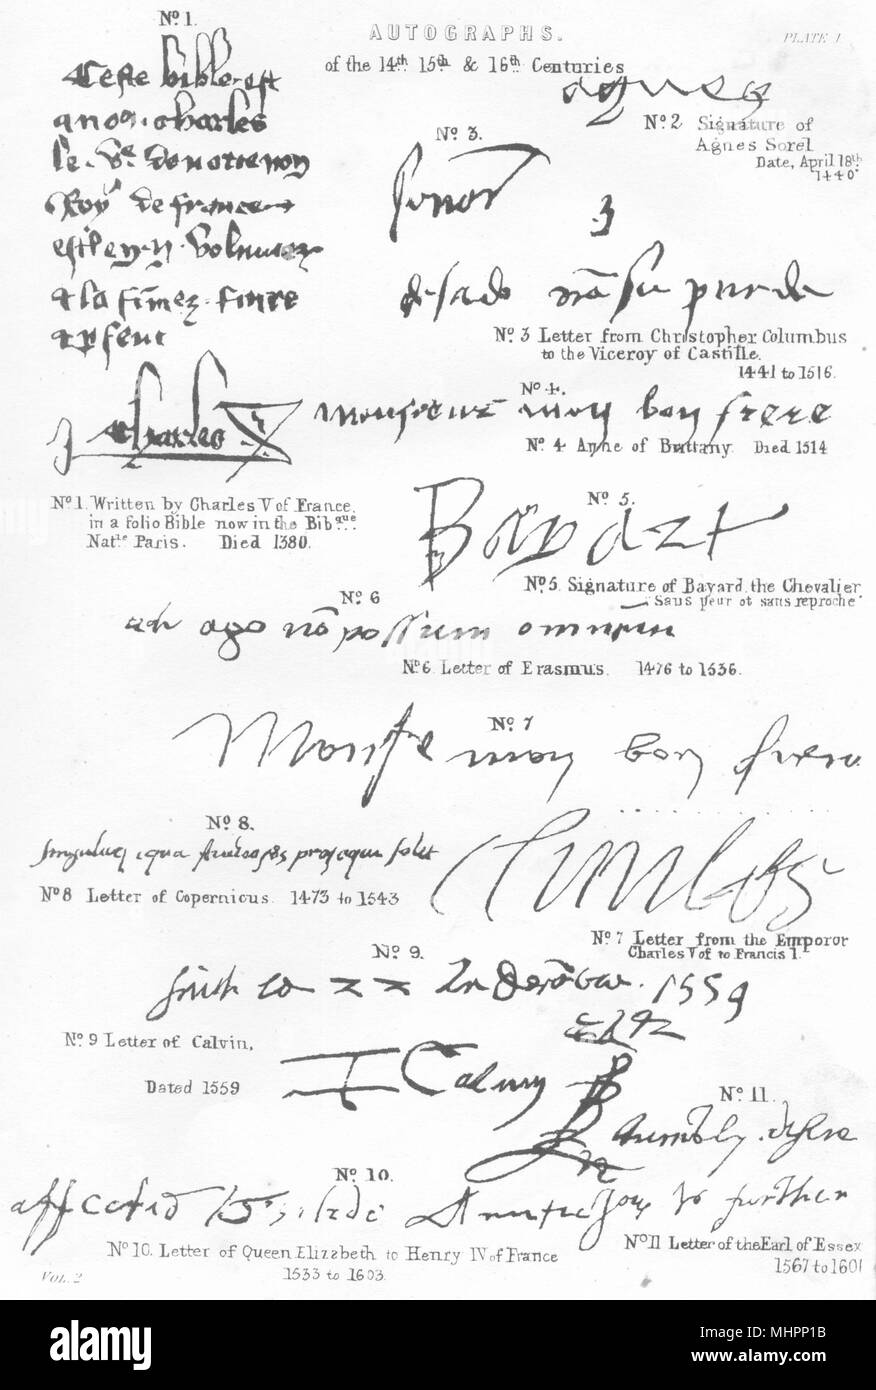 AUTOGRAPHS.
PLATE 1
of the 14th 15th & 16th Centuries
No 1.
Ceste bible est
a nous Charles
le Ve de notre nom
Roy de france
et est en II volumes
et la fimes faire
et parfere
Charles
agnes
No 2 Signature of
Agnes Sorel
Date, April 18th
1440
No 3.
senor
desado no su pu de
No 3 Letter from Christopher Columbus
to the Viceroy of Castille.
1441 to 1516.
No 4.
monsieur mon bon frere
No 4 Anne of Brittany. Died 1514
No 1. Written by Charles V of France,
in a folio Bible now in the Bibque
Natle Paris. Died 1380.
No 5.
Bayart
No 5. Signature of Bayard, the Chevalier
"Sans peur et sans reproche"
No 6
ago no possum omnium
No 6. Letter of Erasmus. 1476 to 1536.
No 7
Monsr mon bon frere
No 8.
solet
No 8 Letter of Copernicus. 1473 to 1543
Charles
No 7 Letter from the Emporor
Charles V of to Francis I.
No 9.
1559
No 9 Letter of Calvin,
Dated 1559
I Calvin
No 11.
humbly desire
No 10.
affected
to further
No 10. Letter of Queen Elizabeth to Henry IV of France
1533 to 1603.
No 11 Letter of the Earl of Essex
1567 to 1601
VOL. 2
alamy
Image ID: MHPP1B
www.alamy.com